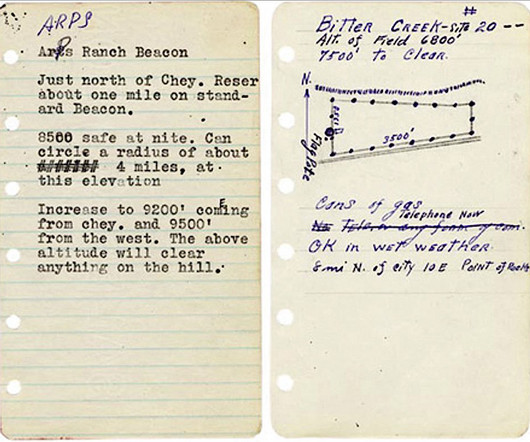 ARPS
Arps Ranch Beacon
Just north of Chey. Reser
about one mile on stand-
ard Beacon.
8500 safe at nite. Can
circle a radius of about
4 miles, at
this elevation
Increase to 9200' coming
from chey. and 9500'
from the west. The above
altitude will clear
anything on the hill.
Bitter Creek - Site 20 --
Alt. of Field 6800'
7500' to Clear.
N.
3500'
Flag Pole
Cans of gas
Telephone Now
No Tele. or any form of com.
OK in wet weather
8 mi N. of city 10 E Point of Rock